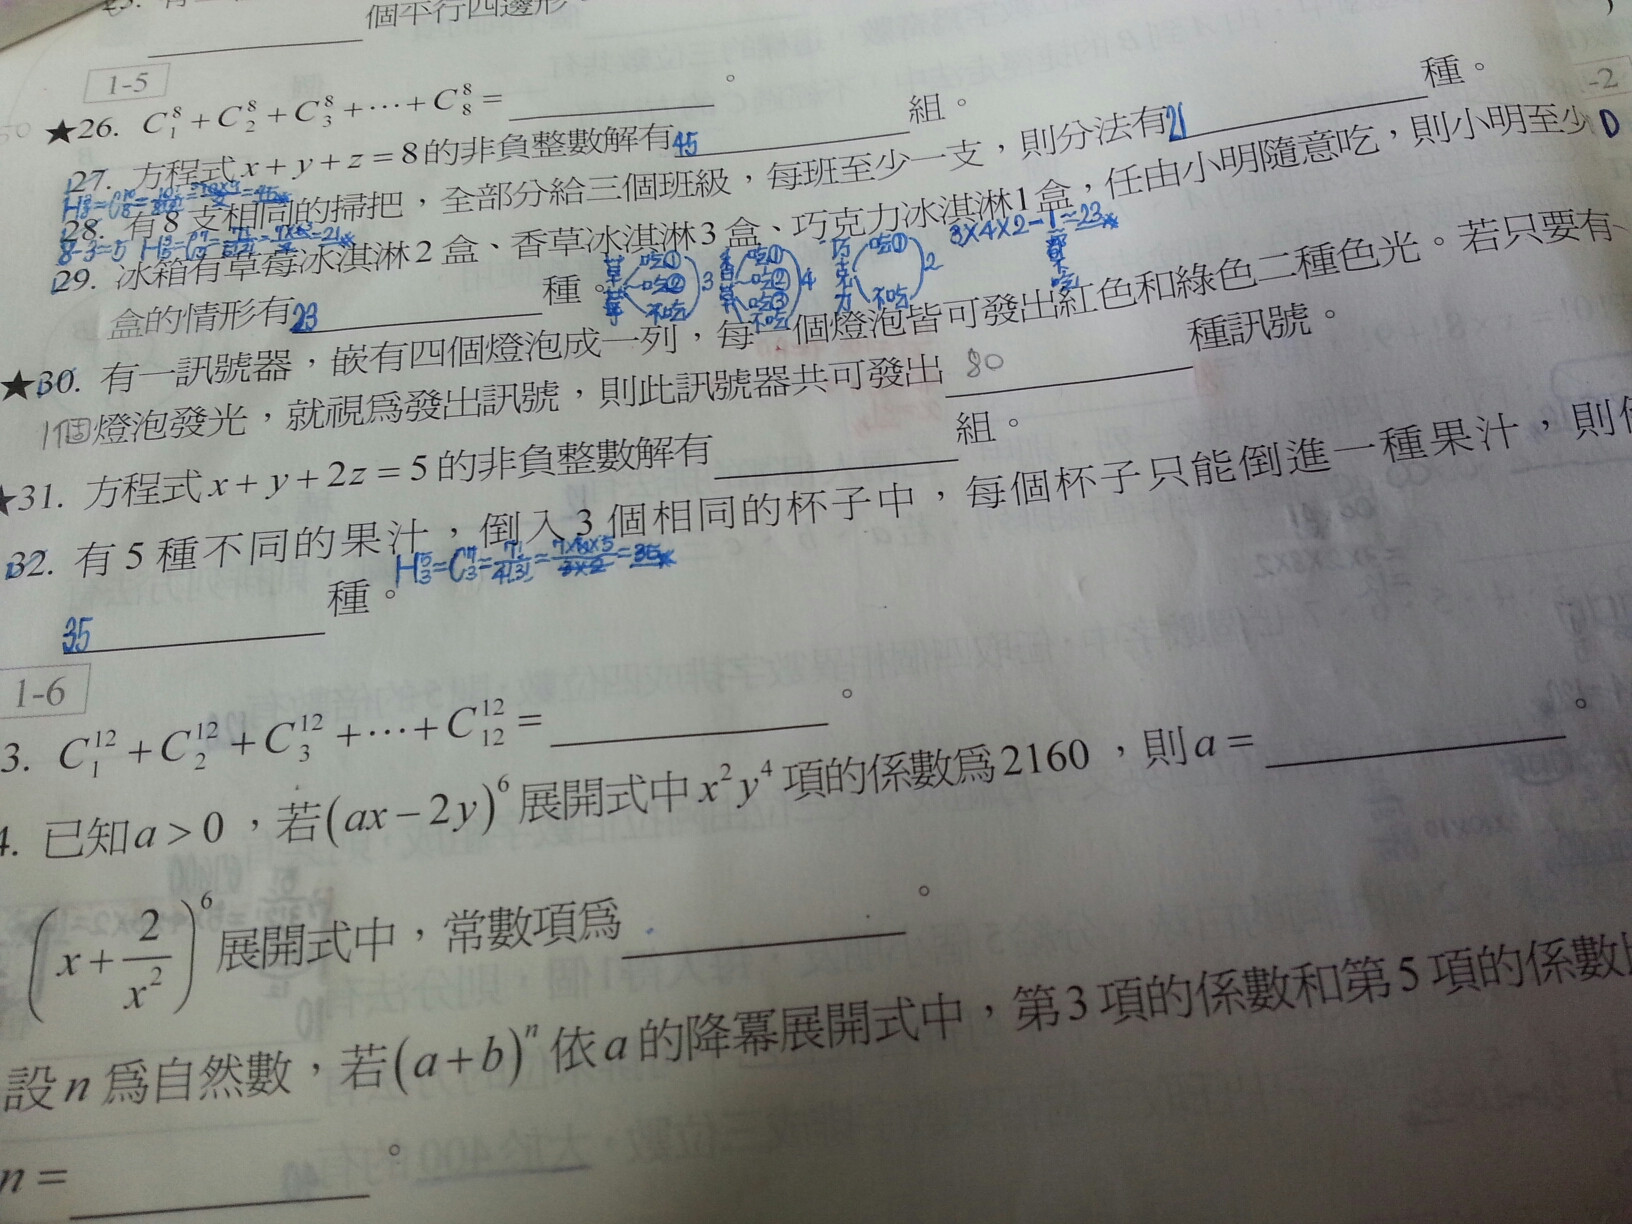 個平行四邊形。
1-5
★26. C₁⁸ + C₂⁸ + C₃⁸ + ⋯ + C₈⁸ = 。
27. 方程式 x + y + z = 8 的非負整數解有 45 組。
28. 有 8 支相同的掃把，全部分給三個班級，每班至少一支，則分法有 21 種。
8-3=5
29. 冰箱有草莓冰淇淋 2 盒、香草冰淇淋 3 盒、巧克力冰淇淋 1 盒，任由小明隨意吃，則小明至少
盒的情形有 23 種。
草莓 吃① 吃② 不吃 3 香草 吃① 吃② 吃③ 不吃 4 巧克力 吃① 不吃 2 3×4×2-1=23 都不吃
★30. 有一訊號器，嵌有四個燈泡成一列，每一個燈泡皆可發出紅色和綠色二種色光。若只要有
1個燈泡發光，就視為發出訊號，則此訊號器共可發出 80 種訊號。
★31. 方程式 x + y + 2z = 5 的非負整數解有 組。
32. 有 5 種不同的果汁，倒入 3 個相同的杯子中，每個杯子只能倒進一種果汁，則
H₃⁵=C₃⁷=7!/4!3!=7×6×5/3×2=35
35 種。
1-6
3. C₁¹² + C₂¹² + C₃¹² + ⋯ + C₁₂¹² = 。
4. 已知 a > 0，若 (ax − 2y)⁶ 展開式中 x²y⁴ 項的係數為 2160，則 a = 。
(x + 2/x²)⁶ 展開式中，常數項為 。
設 n 為自然數，若 (a + b)ⁿ 依 a 的降冪展開式中，第 3 項的係數和第 5 項的係數
n = 。